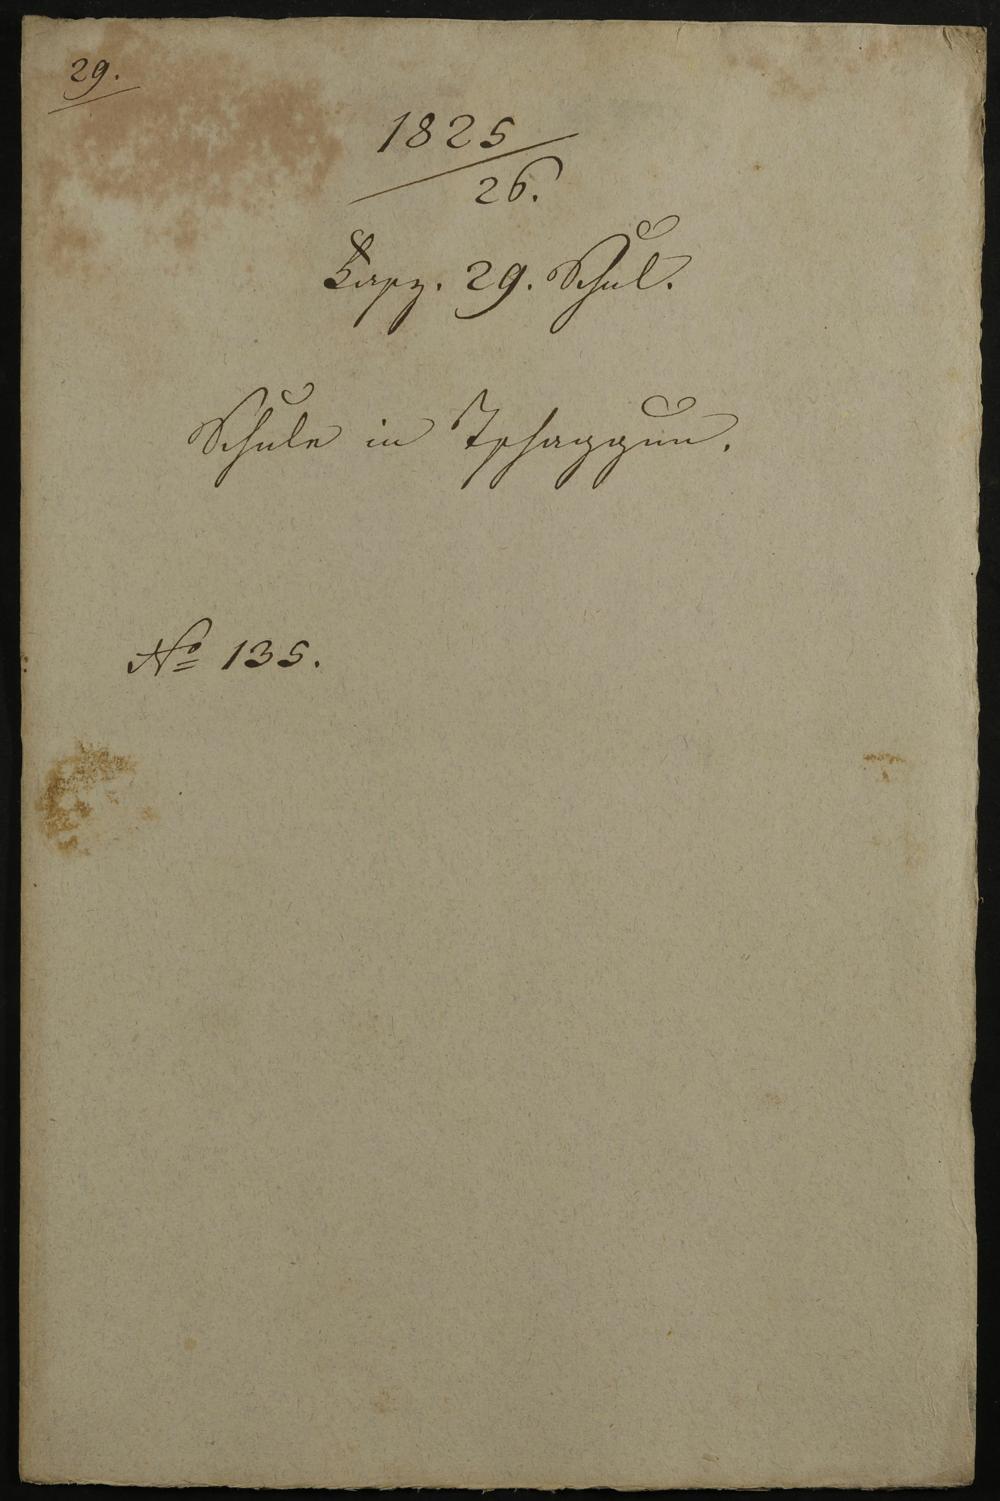 29.
1825
26.
Fasz. 29. Schul.
Schule in Tschaggun.
No 135.